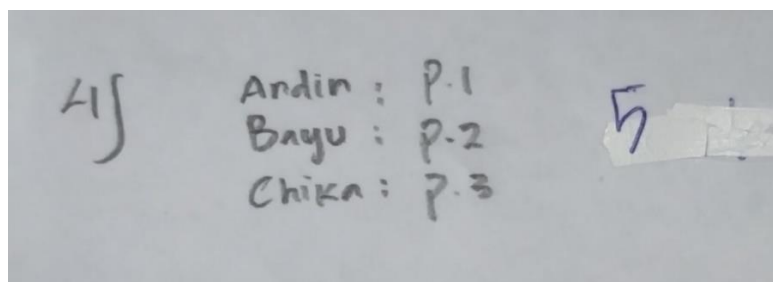 4) Andin : P.1 5
Bayu : P.2
Chika : P.3